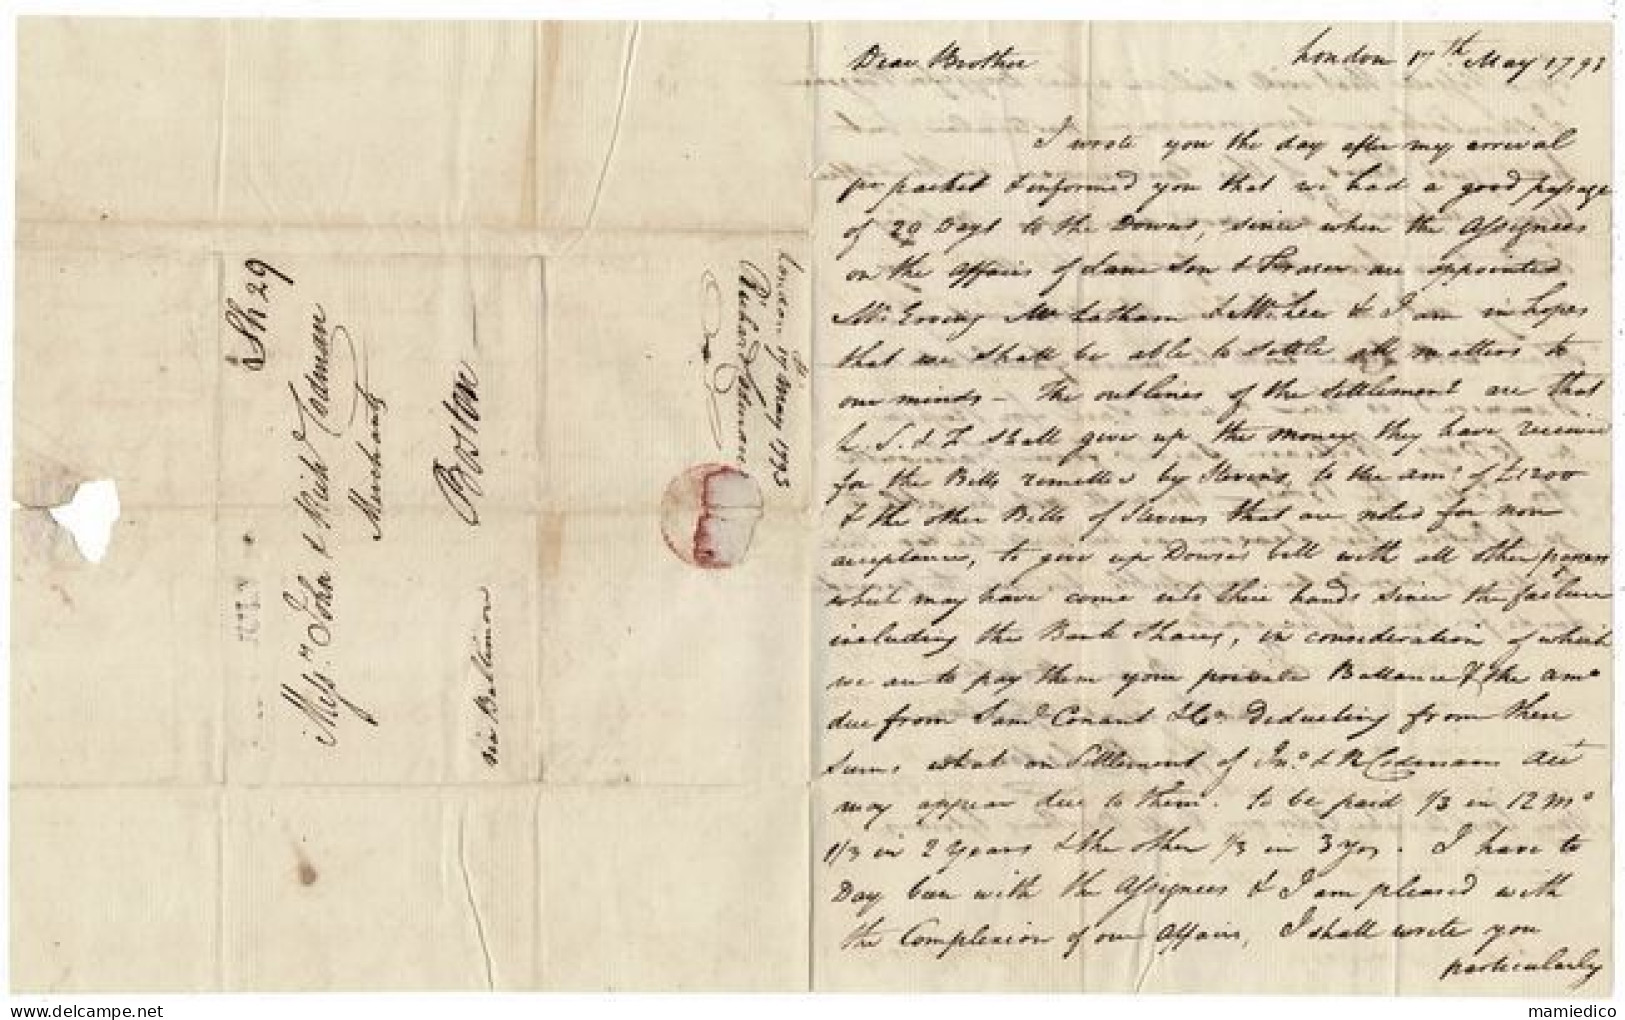 Sh 29
Messrs. John & Richd Codman
Merchants
Boston
via Baltimore
London 17 May 1793
Richard Codman
JULY
Dear Brother London 17th May 1793
I wrote you the day after my arrival
pr packet & informed you that we had a good passage
of 29 Days to the Downs, since when the Assignees
on the affairs of Lane Son & Fraser are appointed
Mr. Erving Mr. Latham & Mr. Lee & I am in hopes
that we shall be able to settle all matters to
our minds – The outlines of the Settlement are that
L. S. & F shall give up the money they have receive
for the Bills remitted by Stevens, to the amt. of £1200
& the other Bills of Stevens that are noted for non
acceptance, to give up Dowse's bill with all other papers
which may have come into their hands since the failure
including the Bank Shares, in consideration of which
we are to pay them your private Ballance & the amo
due from Saml. Conant & Co. Deducting from these
Sums what on Settlement of Jno. & R Codmans Acct
may appear due to them. to be paid 1/3 in 12 mo
1/3 in 2 Years & the other 1/3 in 3 yrs. I have to
Day been with the Assignees & I am pleased with
the Complexion of our Affairs, I shall write you
particularly
mamiedico